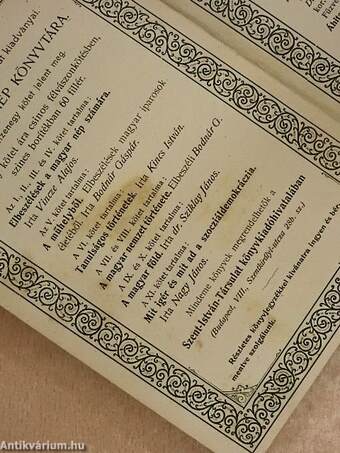 ÉP KÖNYVTÁRA.
zenegy kötet jelent meg.
kötet ára csinos félvászonkötésben,
színes borítékban 60 fillér.
Az I., II., III. és IV. kötet tartalma:
Elbeszélések a magyar nép számára.
Irta Vincze Alajos.
Az V. kötet tartalma:
A műhelyből. Elbeszélések magyar iparosok
életéből. Irta Bodnár Gáspár.
A VI. kötet tartalma:
Tanulságos történetek. Irta Kincs István.
A VII. és VIII. kötet tartalma:
A magyar nemzet története. Elbeszéli Bodnár G.
A IX. és X. kötet tartalma:
A magyar föld. Irta dr. Sziklay János.
A XI. kötet tartalma:
Mit igér és mit ad a szocziáldemokráczia.
Irta Nagy János.
Mindezen könyvek megrendelhetők a
Szent-István-Társulat könyvkiadóhivatalában
(Budapest, VIII., Szentkirályi-utcza 28b. sz.)
Részletes könyvjegyzékkel kívánatra ingyen és bér-
mentve szolgálunk.
Antikvárium.hu
antikvarium.hu